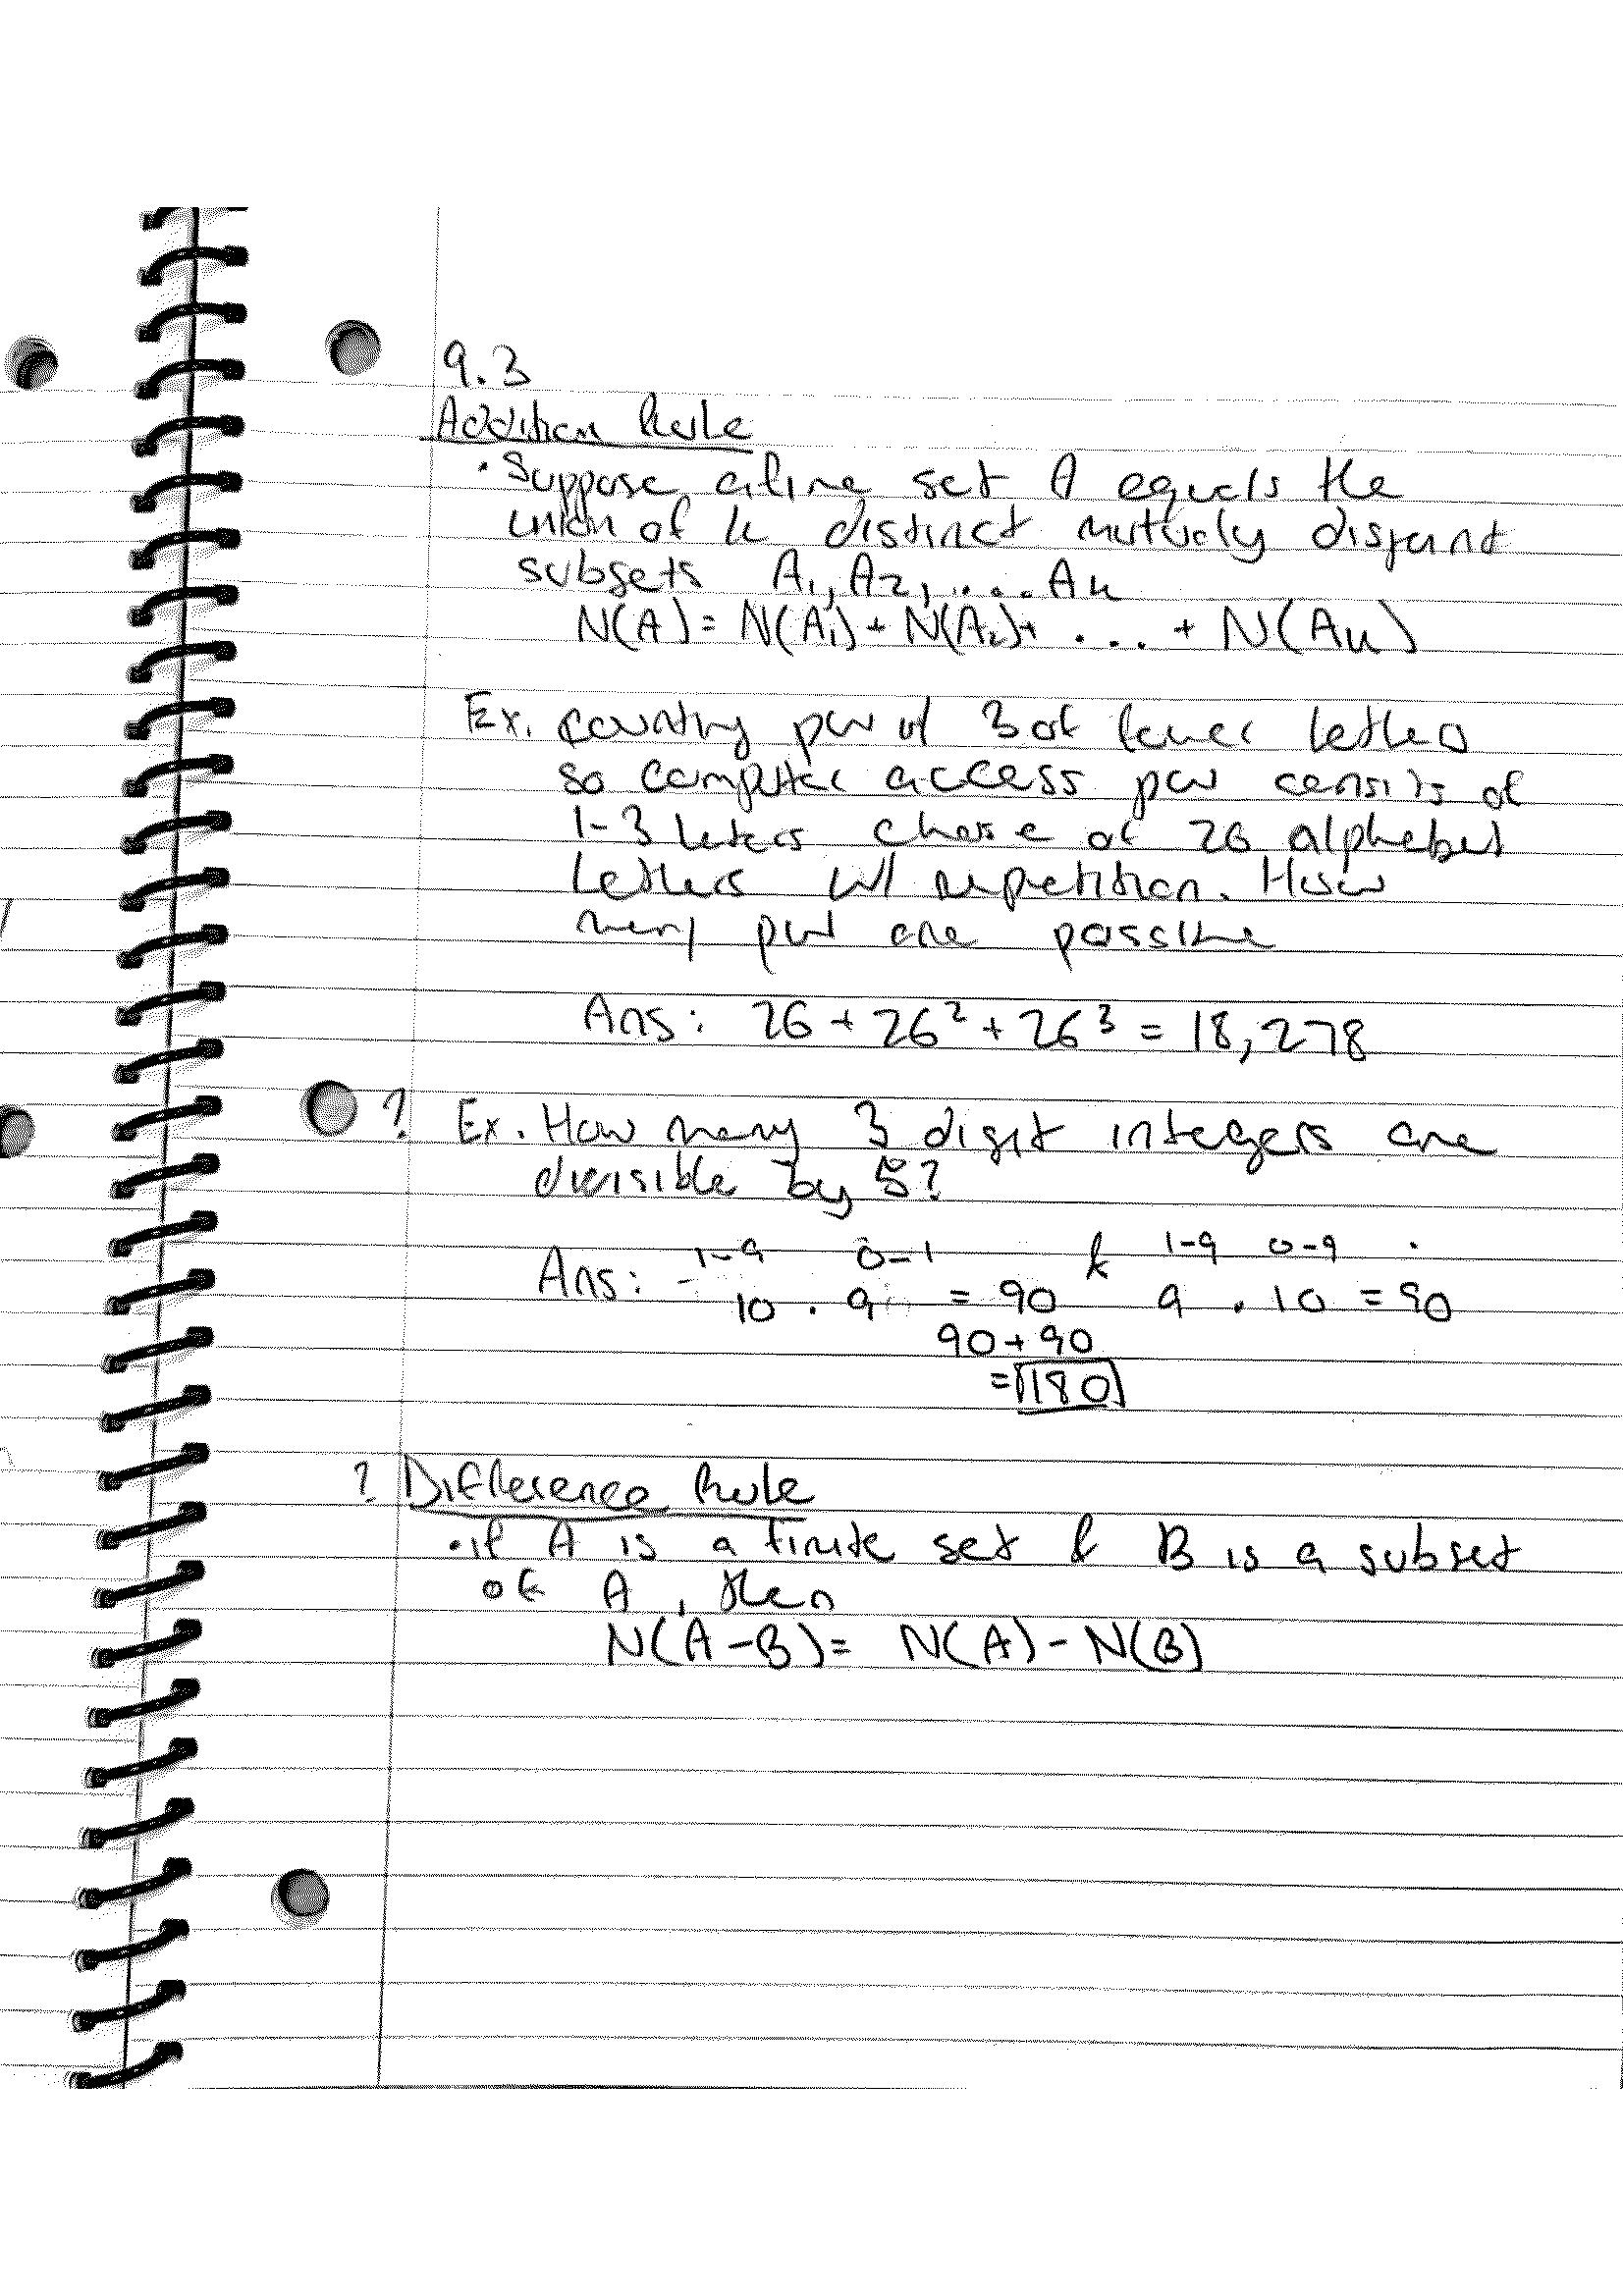 9.3
Addition Rule
• Suppose a fine set A equals the
union of k distinct mutualy disjoint
subsets A₁, A₂, .... Aₖ
N(A) = N(A₁) + N(A₂) + ... + N(Aₖ)
Ex. counting pw of 3 or fewer letters
so computer access pw consists of
1-3 leters chose of 26 alphabet
Letters w/ repetition. How
many pw are possible
Ans: 26 + 26² + 26³ = 18,278
? Ex. How many 3 digit integers are
divisible by 5?
Ans: 1-9 0-1 & 1-9 0-9
10 . 9 = 90 9 . 10 = 90
90 + 90
= 180
? Difference Rule
• if A is a finite set & B is a subset
of A, then
N(A-B) = N(A) - N(B)